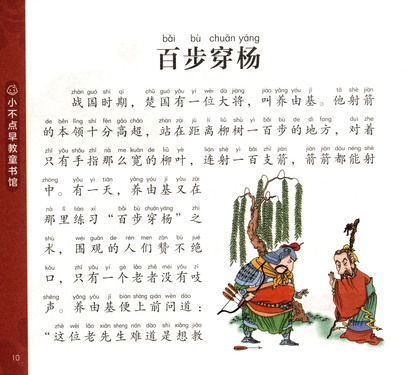 bǎi bù chuān yáng
百步穿杨
zhàn guó shí qī chǔ guó yǒu yí wèi dà jiàng jiào yǎng yóu jī tā shè jiàn
战国时期，楚国有一位大将，叫养由基。他射箭
de běn lǐng shí fēn gāo chāo zhàn zài jù lí liǔ shù yì bǎi bù de dì fāng duì zhe
的本领十分高超，站在距离柳树一百步的地方，对着
zhǐ yǒu shǒu zhǐ nà me kuān de liǔ yè lián shè yì bǎi zhī jiàn jiàn jiàn dōu néng shè
只有手指那么宽的柳叶，连射一百支箭，箭箭都能射
zhòng yǒu yì tiān yǎng yóu jī yòu zài
中。有一天，养由基又在
nà lǐ liàn xí bǎi bù chuān yáng zhī
那里练习“百步穿杨”之
shù wéi guān de rén men zàn bù jué
术，围观的人们赞不绝
kǒu zhǐ yǒu yí gè lǎo zhě méi yǒu zī
口，只有一个老者没有吱
shēng yǎng yóu jī biàn shàng qián wèn dào
声。养由基便上前问道：
zhè wèi lǎo xiān sheng nán dào shì xiǎng jiāo
“这位老先生难道是想教
小不点早教童书馆
10